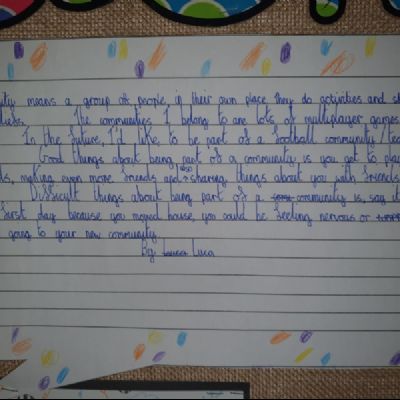 ity means a group of people, in their own place they do activities and sh
The communities I belong to are lots of multiplayer games
In the future, I'd like, to be part of a football community/tea
Good things about being part of a community is you get to play
ds, making even more friends and also sharing things about you with friends
Difficult things about being part of a community is, say it
first day because you moved house, you could be feeling nervous or
going to your new community
By Luca